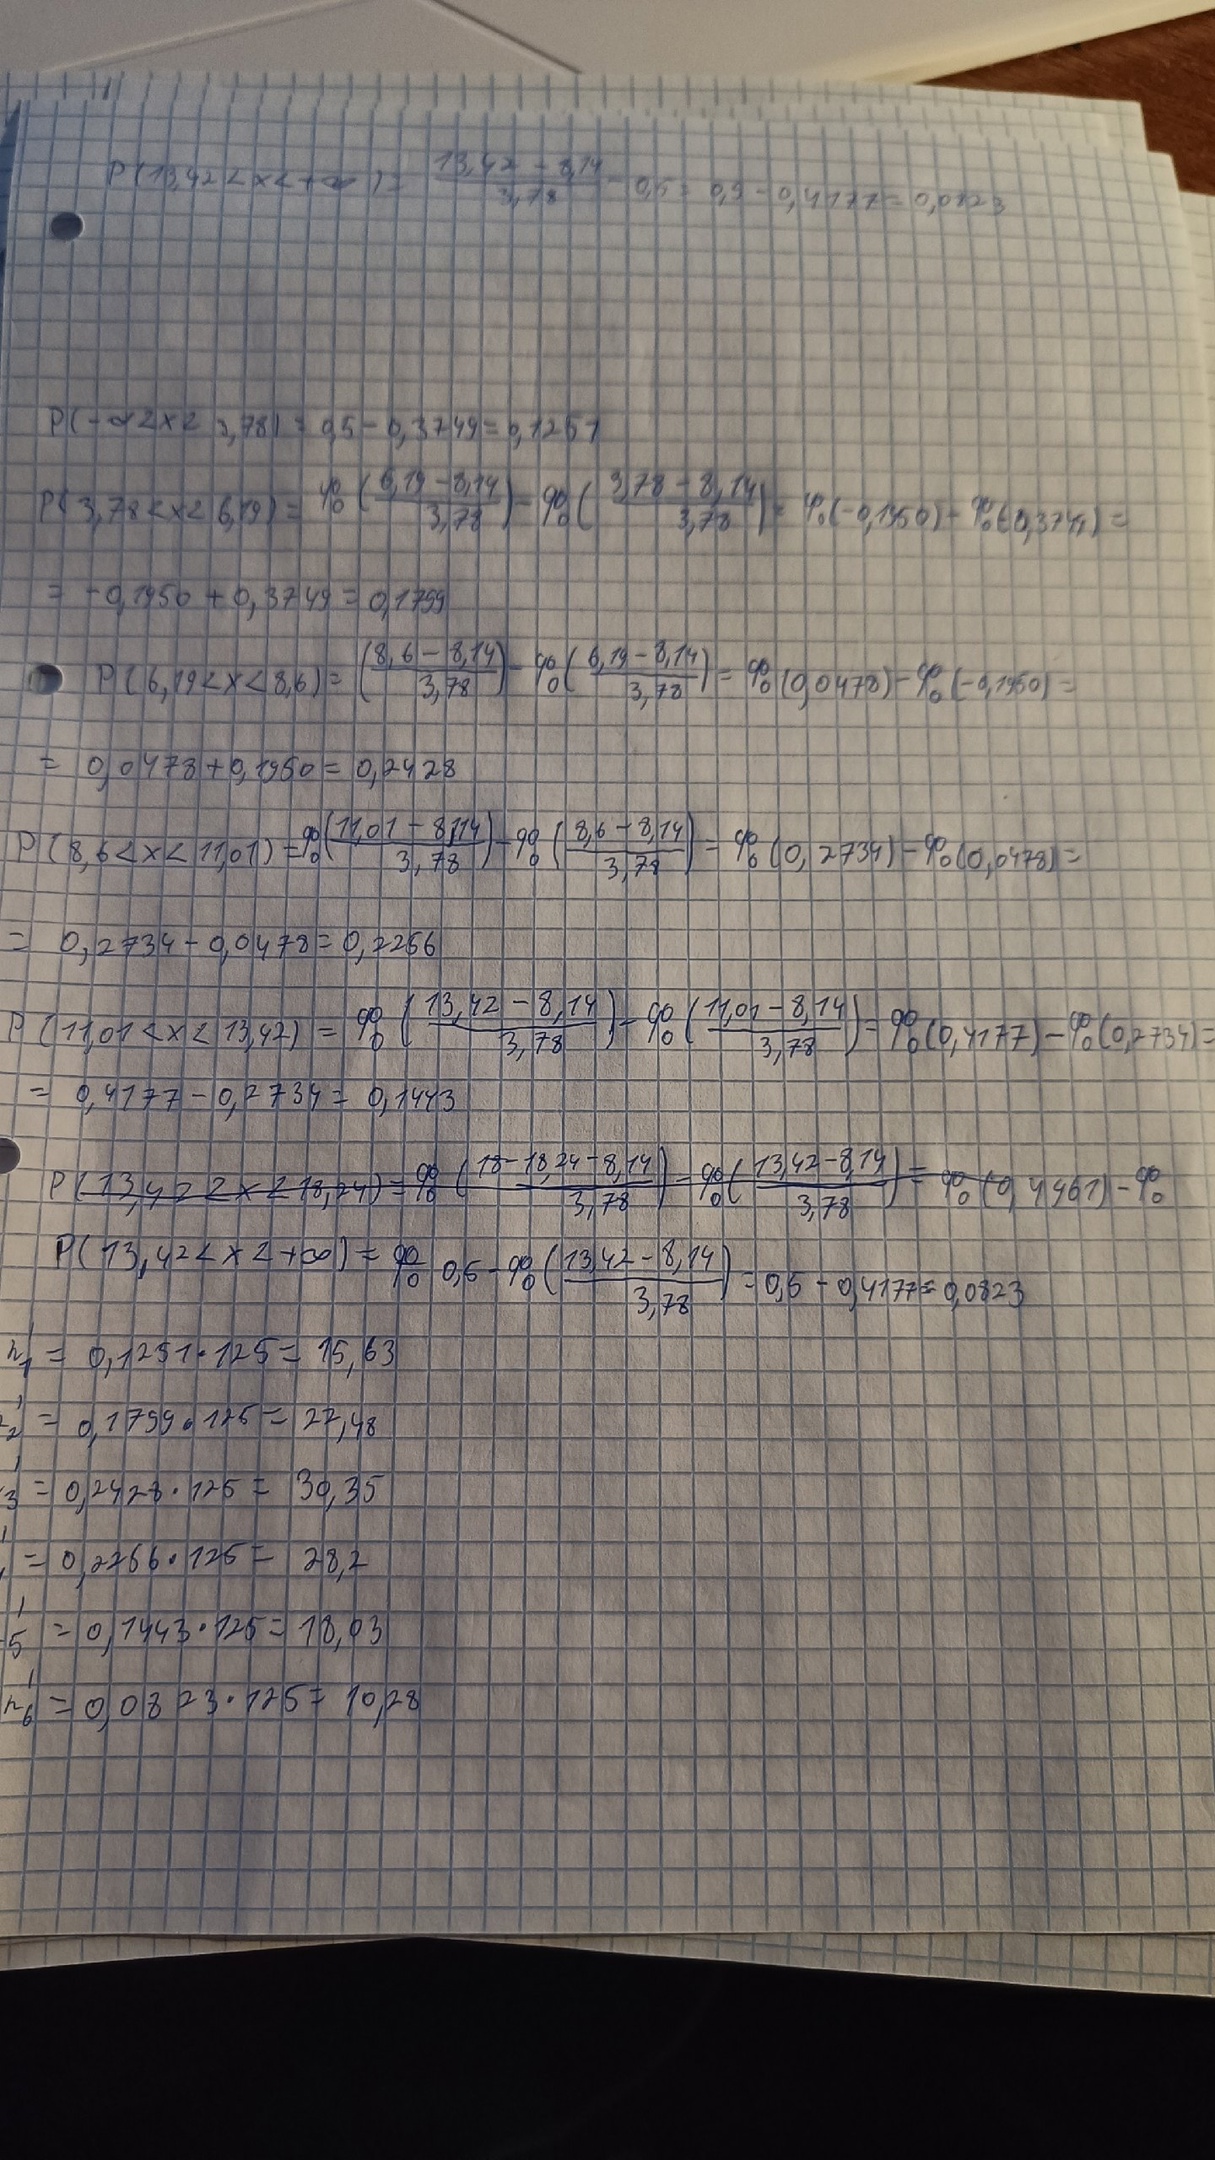 P(13,42<x<+∞)= (13,42-8,14)/3,78 - 0,5 = 0,5-0,4177=0,0823
P(-∞<x< 3,78)= 0,5-0,3749=0,1251
P(3,78<x<6,19)= φ₀((6,19-8,14)/3,78)-φ₀((3,78-8,14)/3,78)= φ₀(-0,1950)-φ₀(-0,3749)=
= -0,1950+0,3749=0,1799
P(6,19<x<8,6)=((8,6-8,14)/3,78)-φ₀((6,19-8,14)/3,78)=φ₀(0,0478)-φ₀(-0,1950)=
= 0,0478+0,1950=0,2428
P(8,6<x<11,01)=φ₀((11,01-8,14)/3,78)-φ₀((8,6-8,14)/3,78)=φ₀(0,2734)-φ₀(0,0478)=
= 0,2734-0,0478=0,2256
P(11,01<x<13,42)= φ₀((13,42-8,14)/3,78)-φ₀((11,01-8,14)/3,78)=φ₀(0,4177)-φ₀(0,2734)=
= 0,4177-0,2734=0,1443
P(13,42<x<18,24)=φ₀((18-18,24-8,14)/3,78)-φ₀((13,42-8,14)/3,78)=φ₀(0,4961)-φ₀
P(13,42<x<+∞)=φ₀ 0,5-φ₀((13,42-8,14)/3,78)=0,5-0,4177=0,0823
n₁' = 0,1251·125= 15,63
₂' = 0,1799·125= 22,48
₃' = 0,2428·125= 30,35
' = 0,2256·125= 28,2
₅' = 0,1443·125=18,03
n₆' = 0,0823·125= 10,28